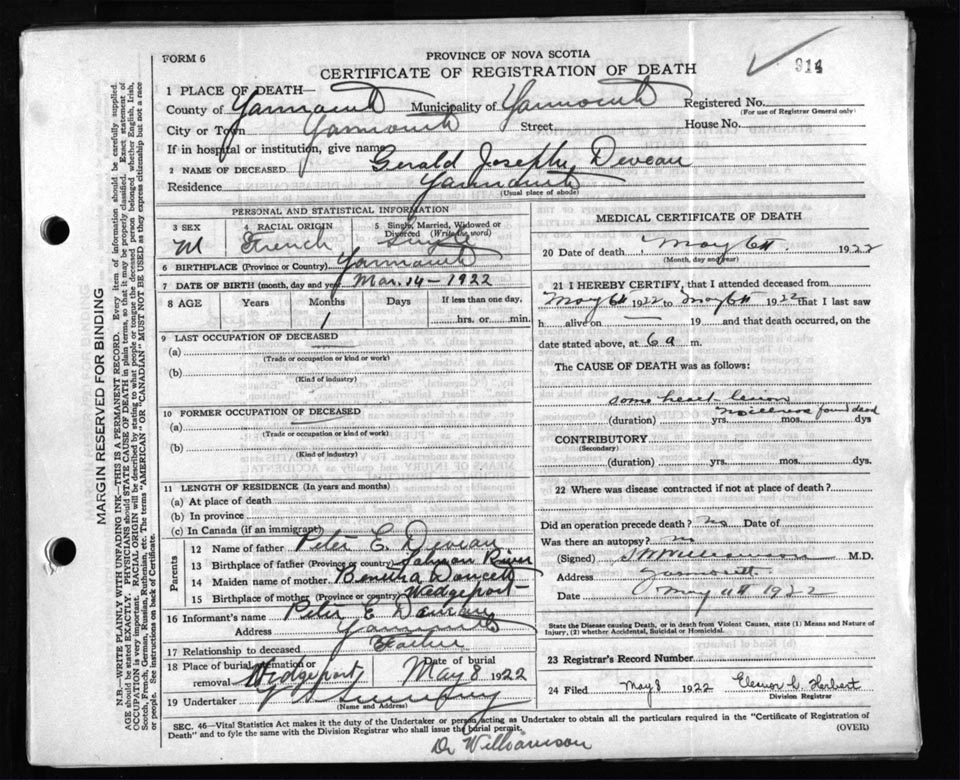 FORM 6
PROVINCE OF NOVA SCOTIA
CERTIFICATE OF REGISTRATION OF DEATH
914
1 PLACE OF DEATH—
County of Yarmouth Municipality of Yarmouth Registered No.
(For use of Registrar General only)
City or Town Yarmouth Street House No.
If in hospital or institution, give name
2 NAME OF DECEASED Gerald Joseph Deveau
Residence Yarmouth
(Usual place of abode)
PERSONAL AND STATISTICAL INFORMATION
3 SEX 4 RACIAL ORIGIN 5 Single, Married, Widowed or Divorced (Write the word)
M French Single
6 BIRTHPLACE (Province or Country) Yarmouth
7 DATE OF BIRTH (month, day and year) Mar. 14 - 1922
8 AGE Years Months Days If less than one day,
1 hrs. or min.
9 LAST OCCUPATION OF DECEASED
(a)
(Trade or occupation or kind or work)
(b)
(Kind of industry)
10 FORMER OCCUPATION OF DECEASED
(a)
(Trade or occupation or kind of work)
(b)
(Kind of industry)
11 LENGTH OF RESIDENCE (In years and months)
(a) At place of death
(b) In province
(c) In Canada (if an immigrant)
Parents
12 Name of father Peter E. Deveau
13 Birthplace of father (Province or country) Salmon River
14 Maiden name of mother Bertha Doucett
15 Birthplace of mother (Province or country) Wedgeport
16 Informant's name Peter E Deveau
Address Yarmouth
17 Relationship to deceased Father
18 Place of burial, cremation or removal Wedgeport Date of burial May 8 1922
19 Undertaker V. S. Sweeny
(Name and Address)
MEDICAL CERTIFICATE OF DEATH
20 Date of death May 6th 1922
(Month, day and year)
21 I HEREBY CERTIFY, that I attended deceased from
May 6th 1922 to May 6th 1922 that I last saw
h alive on — 19 and that death occurred, on the
date stated above, at 6 a m.
The CAUSE OF DEATH was as follows:
some heart lesion
no illness found dead
(duration) yrs. mos. dys
CONTRIBUTORY
(Secondary)
(duration) yrs. mos. dys.
22 Where was disease contracted if not at place of death?
Did an operation precede death? no Date of
Was there an autopsy? no
(Signed) Williamson M.D.
Address Yarmouth
Date May 1922
State the Disease causing Death, or in death from Violent Causes, state (1) Means and Nature of
Injury, (2) whether Accidental, Suicidal or Homicidal.
23 Registrar's Record Number
24 Filed May 8 1922 Eleanor C. Herbert
Division Registrar
SEC. 46—Vital Statistics Act makes it the duty of the Undertaker or person acting as Undertaker to obtain all the particulars required in the "Certificate of Registration of
Death" and to fyle the same with the Division Registrar who shall issue the burial permit. (OVER)
Dr Williamson
MARGIN RESERVED FOR BINDING
N.B.—WRITE PLAINLY WITH UNFADING INK—THIS IS A PERMANENT RECORD. Every item of information should be carefully supplied.
AGE should be stated EXACTLY. PHYSICIANS should STATE CAUSE OF DEATH in plain terms, so that it may be properly classified. Exact statement of
OCCUPATION is very important. RACIAL ORIGIN will be described by stating to what people or tongue the deceased person belonged whether English, Irish,
Scotch, French, German, Russian, Ruthenian, etc. The terms "AMERICAN" or "CANADIAN" MUST NOT BE USED as they express citizenship but not a race
or people. See instructions on back of Certificate.